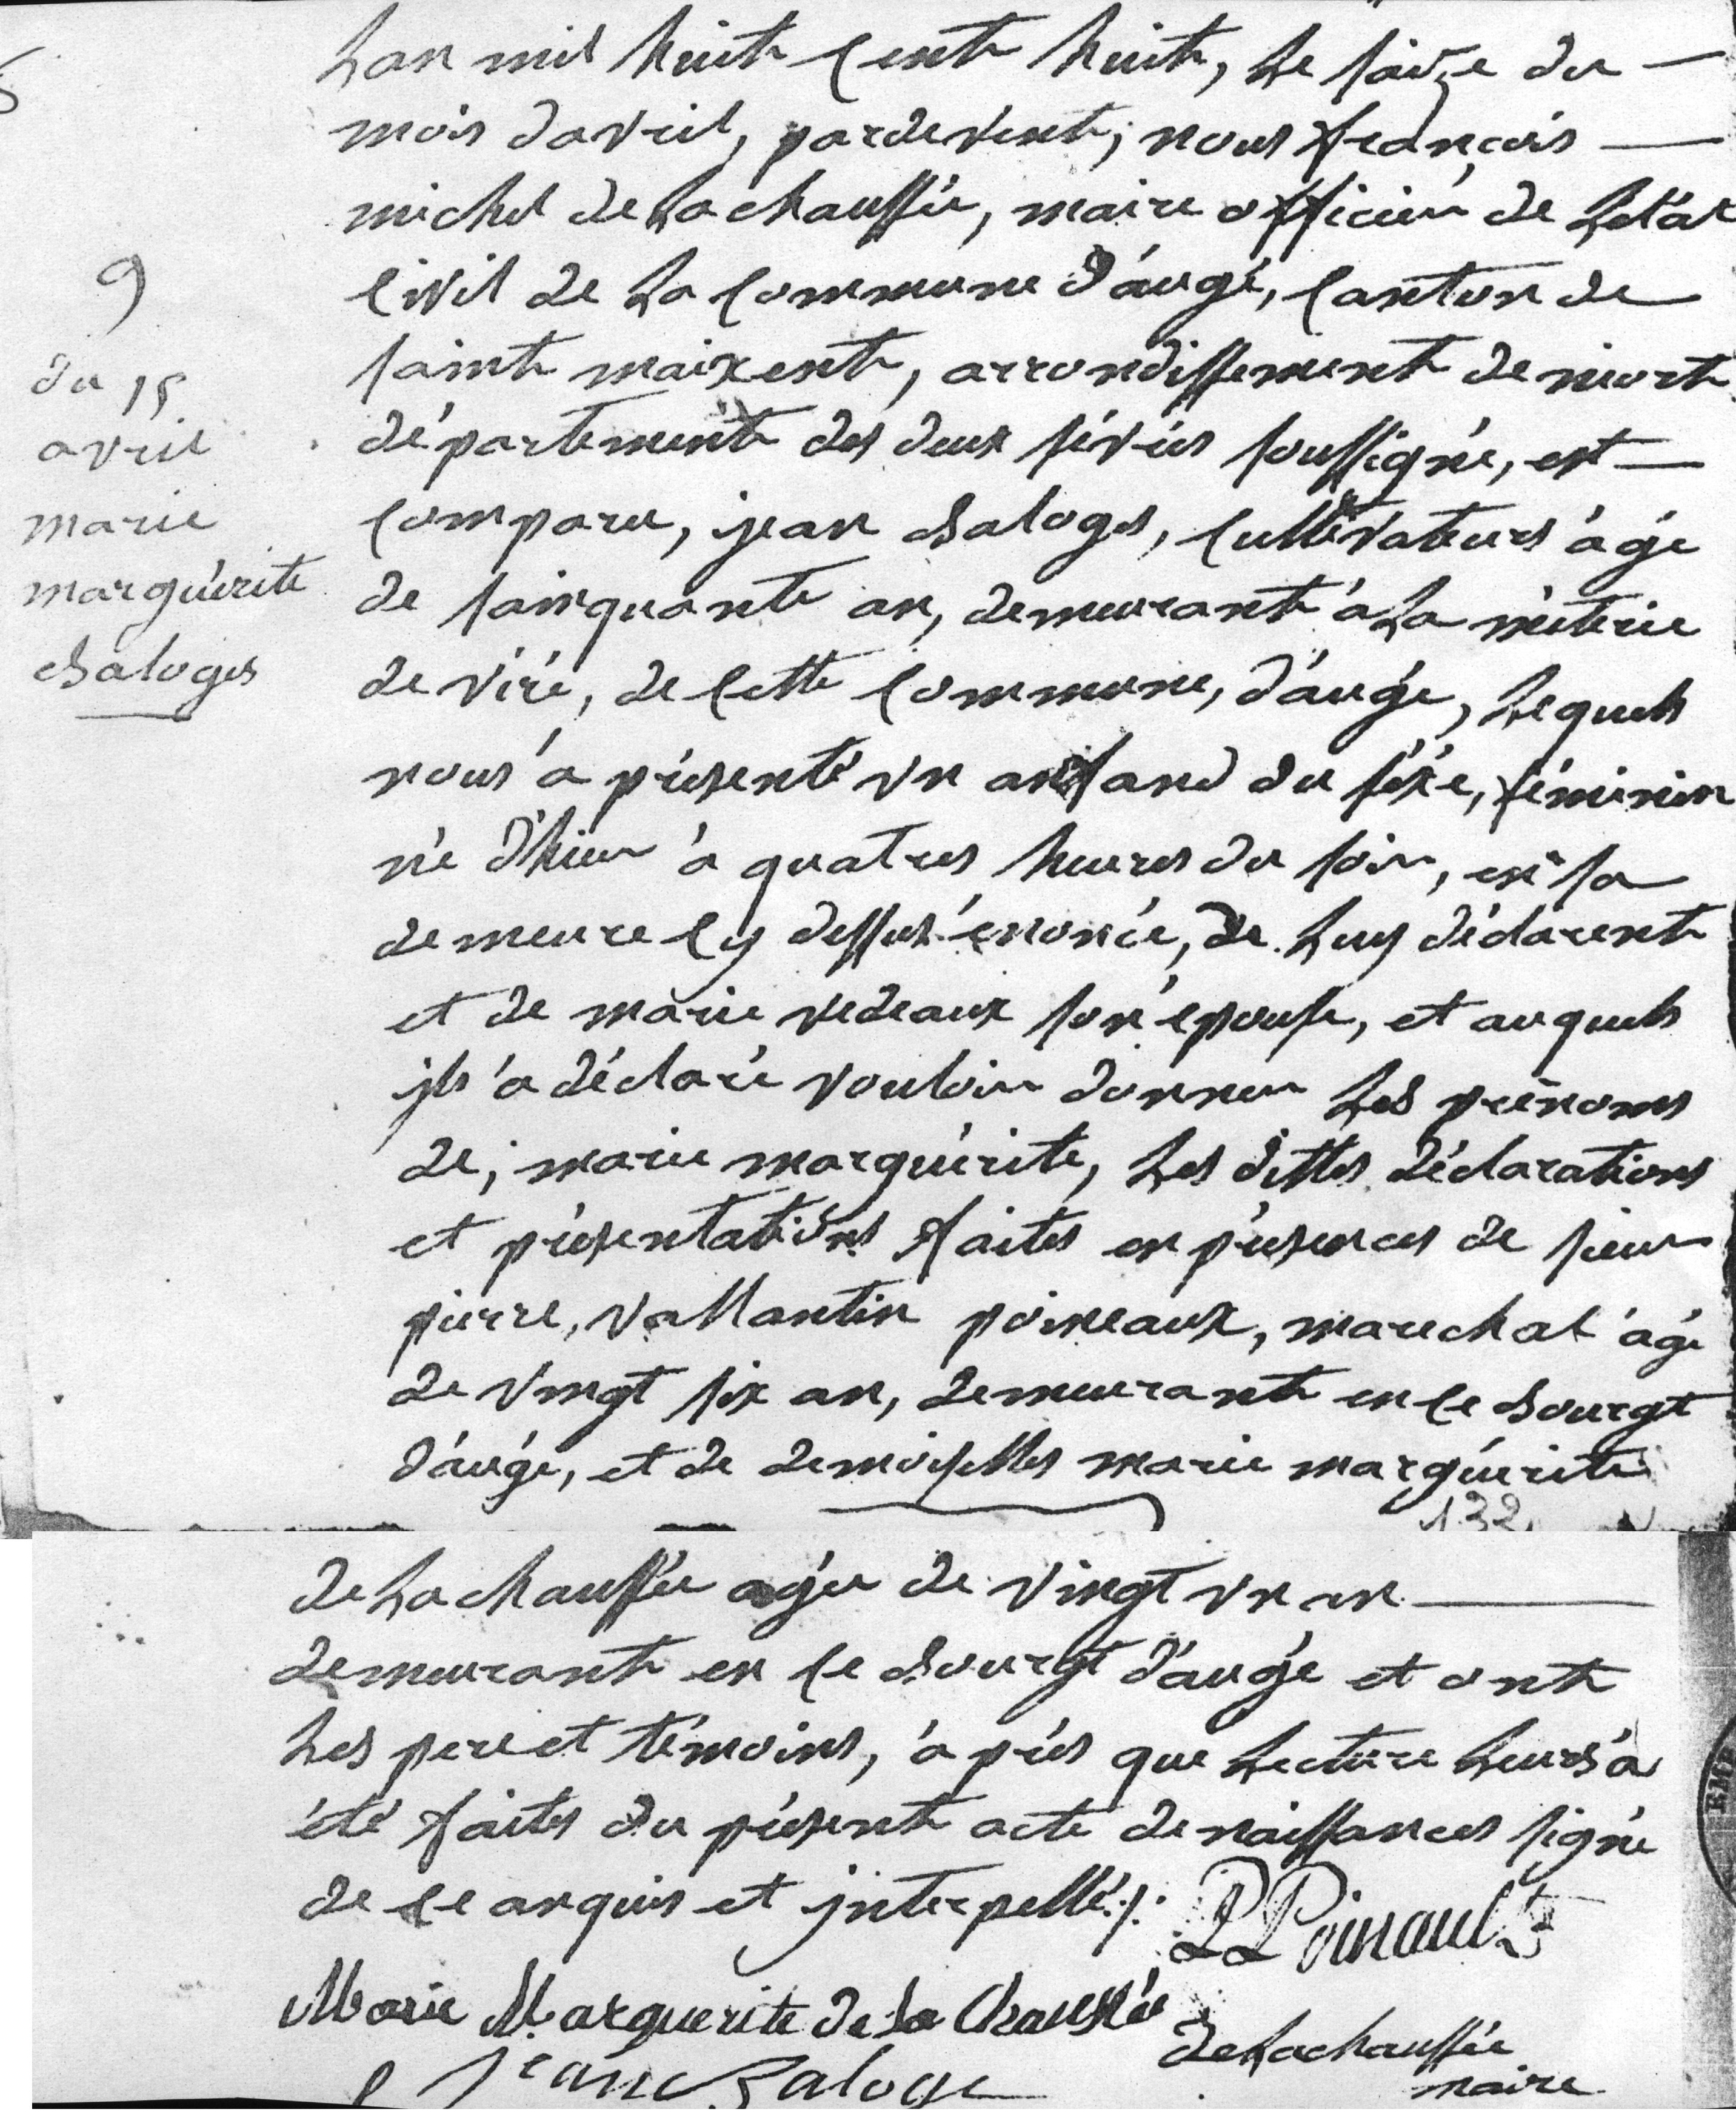 Lan mil huit Cent huit, Le saize du
mois davril, pardevent, nous françois
michel deLachaussée, maire officier de Letat
Civil de La Commune d'augé, Canton de
saint maixent, arrondissement de niort
département des deux sévrés soussigné, est
Comparu, jean Baloges, Cultivateurs âgé
de sainquante an, demeurant à La méterie
de viré, de Cette Commune, d'augé, Lequels
nous a présenté vn anfand du séxe, féminin
né d'hier à quatres heures du soir, en sa
demeure Cy dessus énoncée, de Luy déclarent
et de marie vedeaux son épouse, et auquels
jls a déclaré vouloir donner Les prénoms
de, marie marguérite, Les dittes déclarations
et présentations faites en présences de sieur
pierre, vallantin poineaux, marechal âgé
de vingt six an, demeurant en Ce Bourgt
d'augé, et de demoiselles marie marguérite
132
9
du 15
avril
marie
marguérite
Baloges
deLachaussée agée de vingt vn an
demeurant en Ce Bourgt d'augé et ont
Les pere et témoins, après que Lecture Leurs a
été faites du présent acte de naissances signé
de Ce anquis et jnterpellé ./.
Poinault
Marie Marguerite De La Chaussée
deLachaussée
maire
Jean Baloge